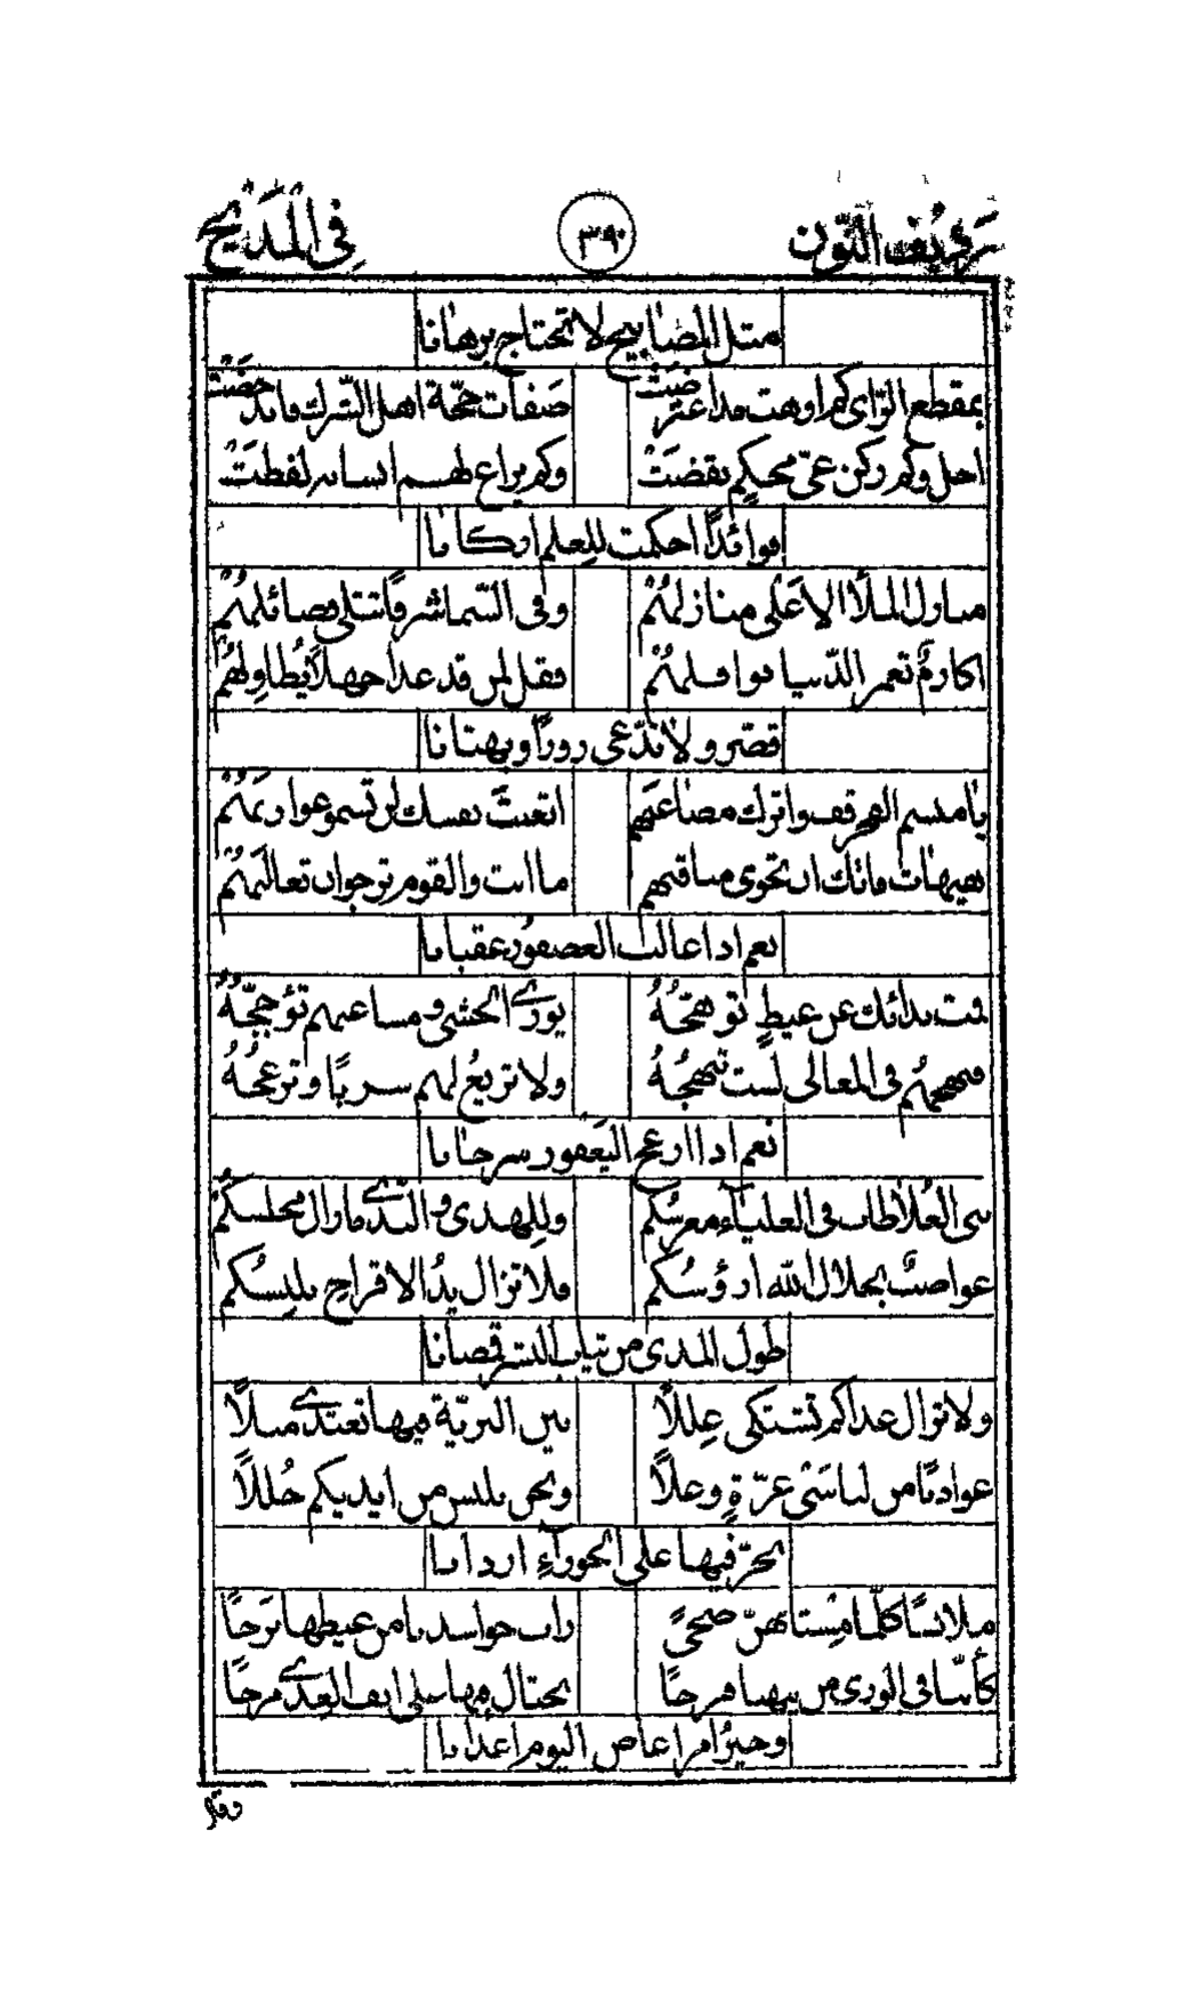 رديف النون ٣٩٠ في المديح
مثل المصابيح لا تحتاج برهانا
بمقطع الرّاى كم اوهت مداعترضَتْ صَفات حجّة اهل الشّرك فاندحضَتْ
اجل وكم ركن غىّ محكمٍ نقضَتْ وكم يراع لهم انسانه لفظَتْ
فوائدًا احكمت للعلم اركانا
منازل الملأ الاعَلى منازلهُمْ وفى السّما شرفًا تتلى فضائلهُمْ
اكارمٌ تعمر الدّنيا نوافلهُمْ فقل لمن قد غدا جهلاً يُطاولهُمْ
قصّر ولا تدّعى زورًا وبهتانا
يا منسم الهم قف واترك مضاعَهم اتعبتَ نفسك لن تسمو عوارمَهُمْ
هيهات مانك ان تحوى مناقبهم ما انت والقوم ترجو ان تعالَيهُمْ
نعم اذا غالب العصفور عقبانا
فمت بدائك عن غيظٍ توهّجُهُ يورى الحشى ومساعيهم تؤجّجُهُ
فنهجهُم فى المعالى لست تنهجُهُ ولا تريعُ لهم سربًا وتزعجُهُ
نعم اذا ازعج اليَعفور سرحانا
بنى العُلا طاب فى العلياءِ معرسُكم وللهدى والنّدى مازال مجلسكُم
غواصبٌ بجلال الله ارؤسُكم فلا تزال يدُ الافراحِ تلبِسُكم
طول المدى من ثياب البشر قمصانا
ولا تزال عداكم تشتكى عِللاً بين البريّة فيها تغتدى مثلاً
عوادنًا من لباسَى عزّةٍ وعلاً ونحن نلبس من ايديكم حُللاً
نجرّ فيها على الجوزآءِ اردانا
ملابسًا كلّما مِسنا بهنّ ضحىً ذاب حواسدنا من غيظها تَرَحًا
كأنّنا فى الورى من تيهنا فرحًا نختال فيها على انف العِدى مرحًا
وخيرُ امرٍ اغاض اليوم اعدانا